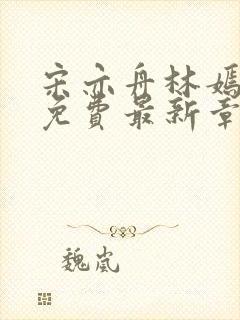 宋亦舟林嫣
免费最新章
魏岚